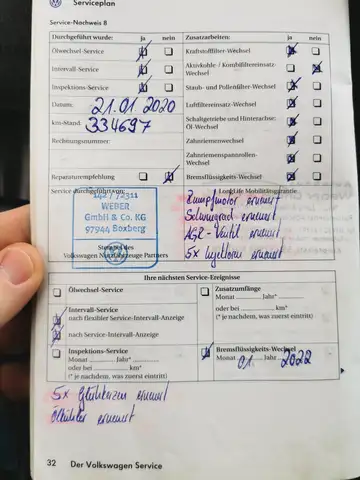 Serviceplan
Service-Nachweis 8
Durchgeführt wurde: ja nein
Zusatzarbeiten: ja nein
Ölwechsel-Service
Intervall-Service
Inspektions-Service
Datum: 21.01.2020
km-Stand: 334697
Rechnungsnummer:
Reparaturempfehlung
Kraftstofffilter-Wechsel
Aktivkohle-/Kombifiltereinsatz-
Wechsel
Staub- und Pollenfilter-Wechsel
Luftfiltereinsatz-Wechsel
Schaltgetriebe und Hinterachse:
Öl-Wechsel
Zahnriemenwechsel
Zahnriemenspannrollen-
Wechsel
Bremsflüssigkeits-Wechsel
Service durchgeführt von:
142 / 72311
WEBER
GmbH & Co. KG
97944 Boxberg
Stempel des
Volkswagen Nutzfahrzeuge Partners
LongLife Mobilitätsgarantie
Rumpfmotor erneuert
Schwungrad erneuert
AGR-Ventil erneuert
5x Injektoren erneuert
Ihre nächsten Service-Ereignisse
Ölwechsel-Service
Intervall-Service
nach flexibler Service-Intervall-Anzeige
nach Service-Intervall-Anzeige
Inspektions-Service
Monat Jahr*
oder bei km*
(* je nachdem, was zuerst eintritt)
Zusatzumfänge
Monat Jahr*
oder bei km*
(* je nachdem, was zuerst eintritt)
Bremsflüssigkeits-Wechsel
Monat 01 Jahr 2022
5x Glühkerzen erneuert
Ölkühler erneuert
32 Der Volkswagen Service